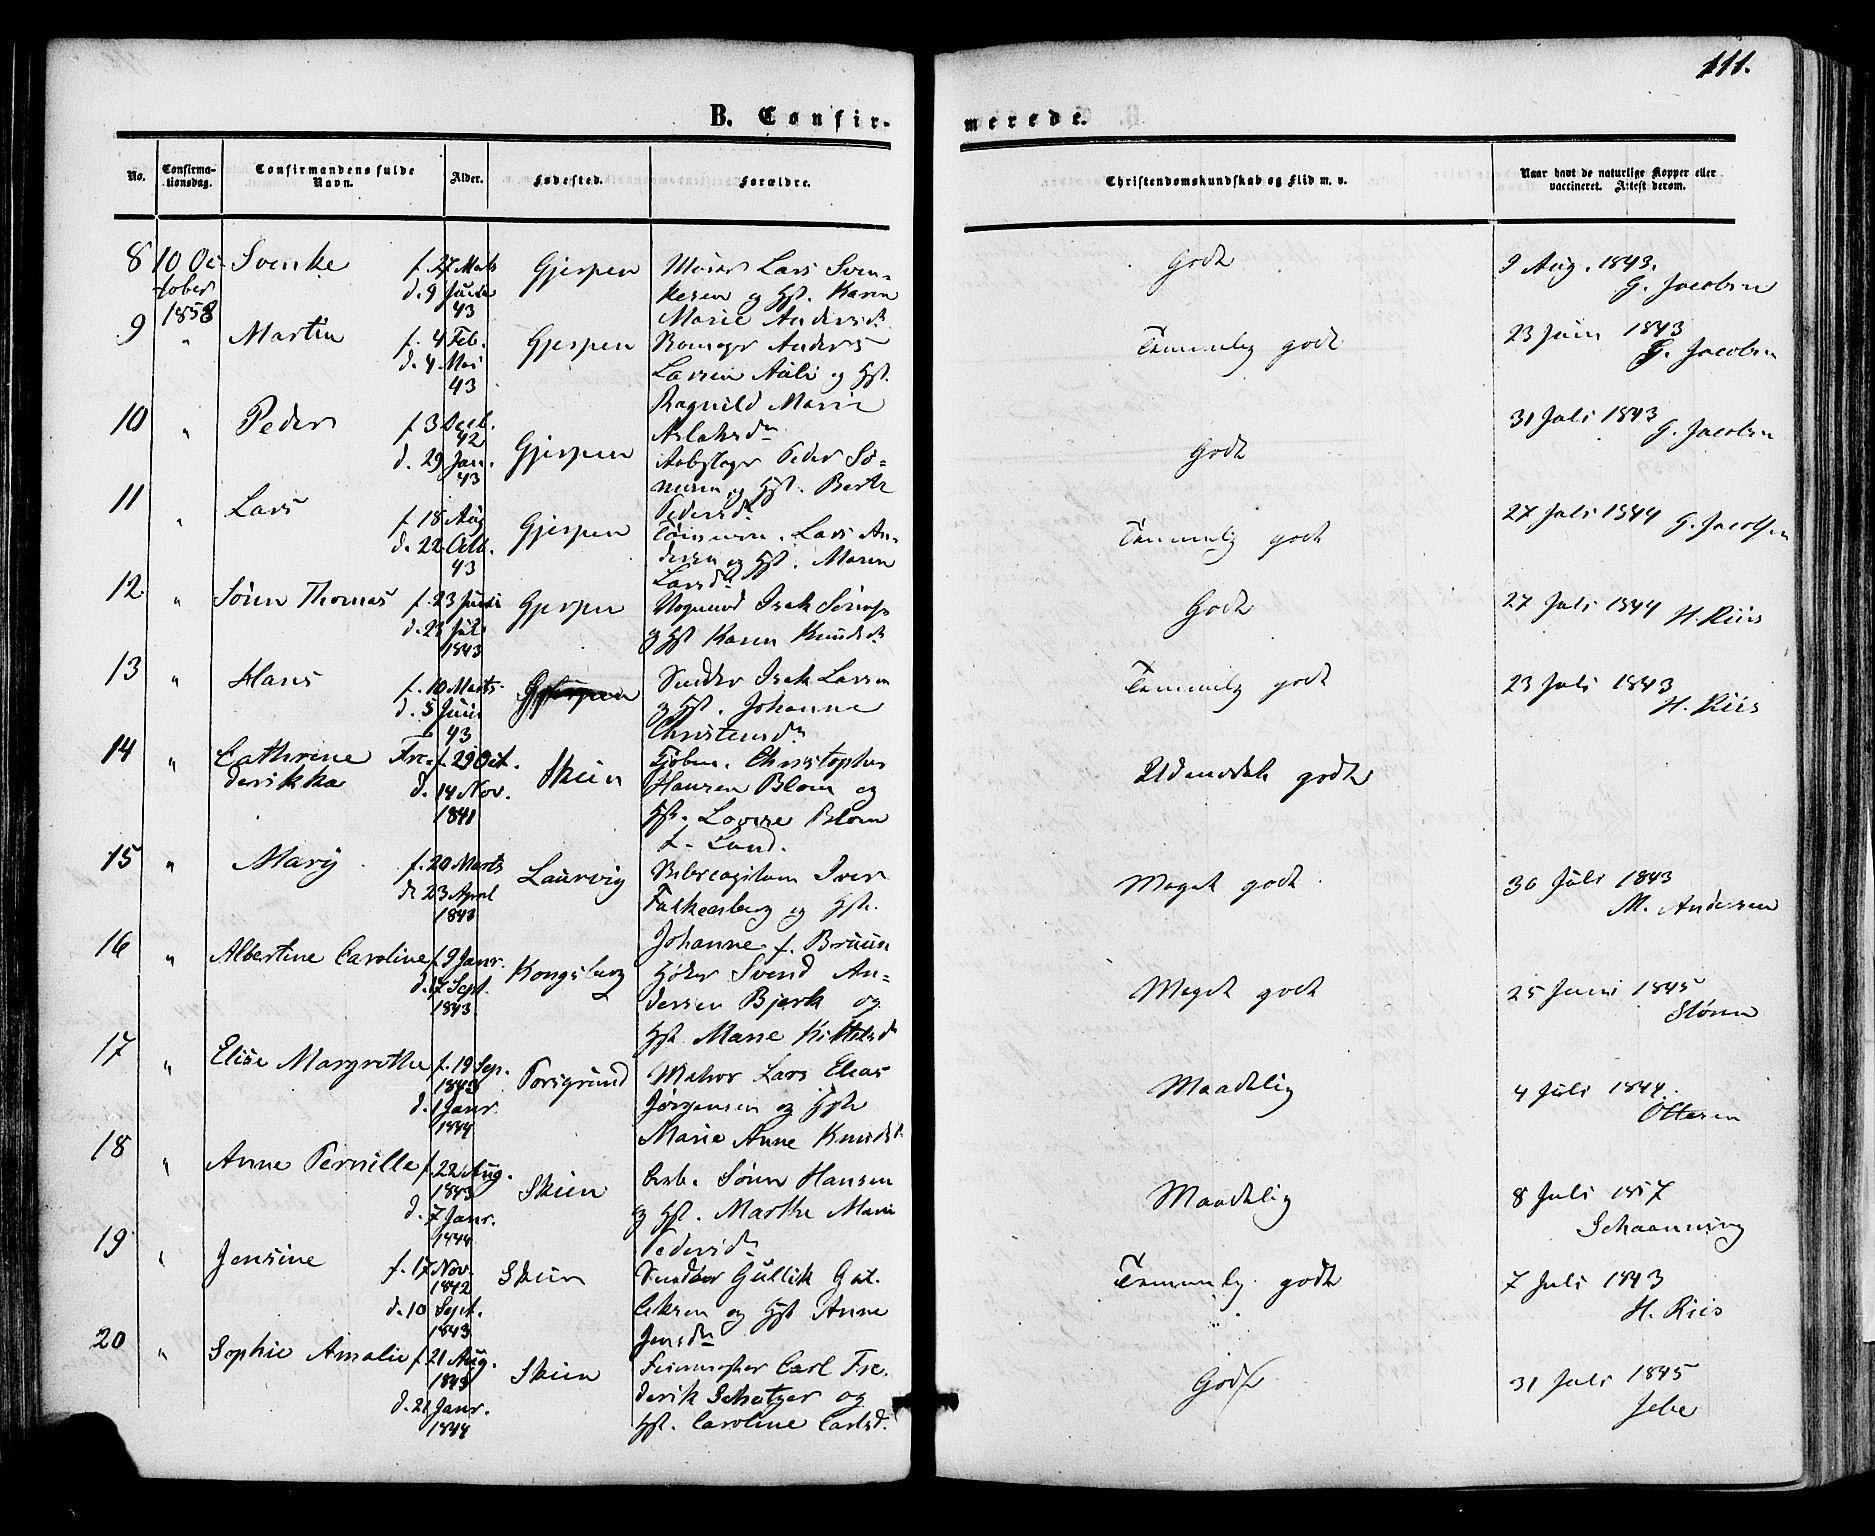 111.
B. Confirmerede.
No. Confirmationsdag. Confirmandens fulde Navn. Alder. Fødested. Forældre. Christendomskundskab og Flid m. v. Naar havt de naturlige Kopper eller vaccineret. Attest derom.
8 10 October 1858 Svenke f. 27 Marts d. 9 Juli 43 Gjerpen Murer Lars Svenkesen og Hst. Karen Marie Andersd. Godt 9 Aug. 1843. G. Jacobsen
9 " Martin f. 4 Feb. d. 4 Mai 43 Gjerpen Anders Larsen Aili og Hst. Ragnild Marie Aslaksd. Temmelig godt 23 Juni 1843 G. Jacobsen
10 " Peder f 3 Decb. 42 d. 29 Jan. 43 Gjerpen Peder og Hst. Berthe Pedersd. Godt 31 Juli 1843 G. Jacobsen
11 " Lars f. 18 Aug d. 22 Oct. 43 Gjerpen Tømmerm. Lars Andersen og Hst. Maren Larsd. Temmelig godt 27 Juli 1844 G. Jacobsen
12 " Sören Thomas f. 23 Juni d. 23 Juli 1843 Gjerpen Vognmd Isak og Hst Karen Knudsd. Godt 27 Juli 1844 H. Riis
13 " Hans f. 10 Marts d. 5 Juni 43 Gjerpen Isak Larsen og Hst. Johanne Christensd. Temmelig godt 23 Juli 1843 H. Riis
14 " Cathrine Frederikka f. 29 Oct. d. 14 Nov. 1841 Skien Kjöbm. Christopher Hansen Blom og Hst. Lovise Blom f. Lund. Udmærket godt
15 " Mary f. 20 Marts d. 23 April 1843 Laurvig Iver Falkenberg og Hst. Johanne f. Bruun Meget godt 30 Juli 1843 M. Andersen
16 " Albertine Caroline f. 9 Janr. d. 17 Sept. 1843 Kongsberg Høker Svend Andersen Bjerk og Hst Marie Kittelsd. Meget godt 25 Juni 1845 Stönn
17 " Elise Margrethe f. 19 Sep. 1843 d. 1 Janr. 1844 Porsgrund Maler Lars Elias Jörgensen og Hst Marie Anne Knudsd. Maadelig 4 Juli 1844. Ottesen
18 " Anne Pernille f. 22 Aug. 1843 d. 7 Janr. 1844 Skien Arb. Sören Hansen og Hst. Marthe Marie Pedersd. Maadelig 8 Juli 1857 Schaanning
19 " Jensine f. 17 Nov. 1842 d. 10 Sept. 1843 Skien Gullik og Hst Anne Jensd. Temmelig godt 7 Juli 1843 H. Riis
20 " Sophie Amalie f. 21 Aug. 1843 d. 21 Janr. 1844 Skien Carl Frederik Schetzer og Hst. Caroline Carlsd. Godt 31 Juli 1845 Jebe